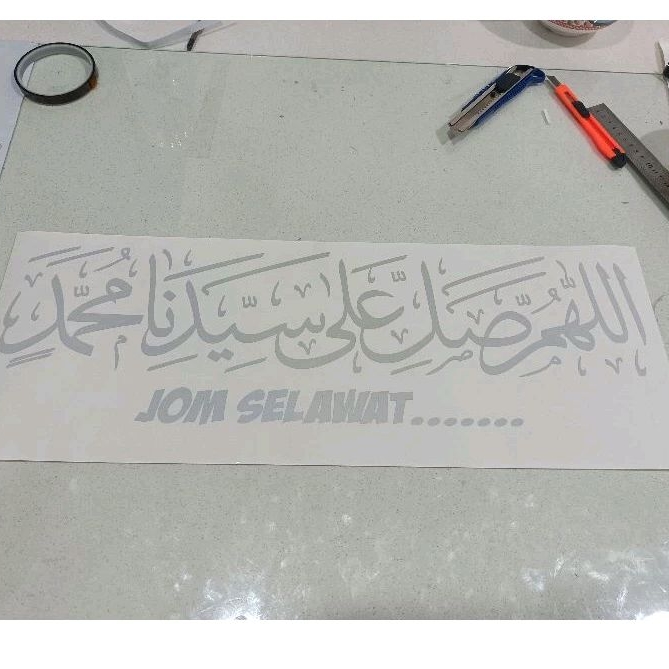 اللّٰهُمَّ صَلِّ عَلَى سَيِّدِنَا مُحَمَّدٍ
JOM SELAWAT........